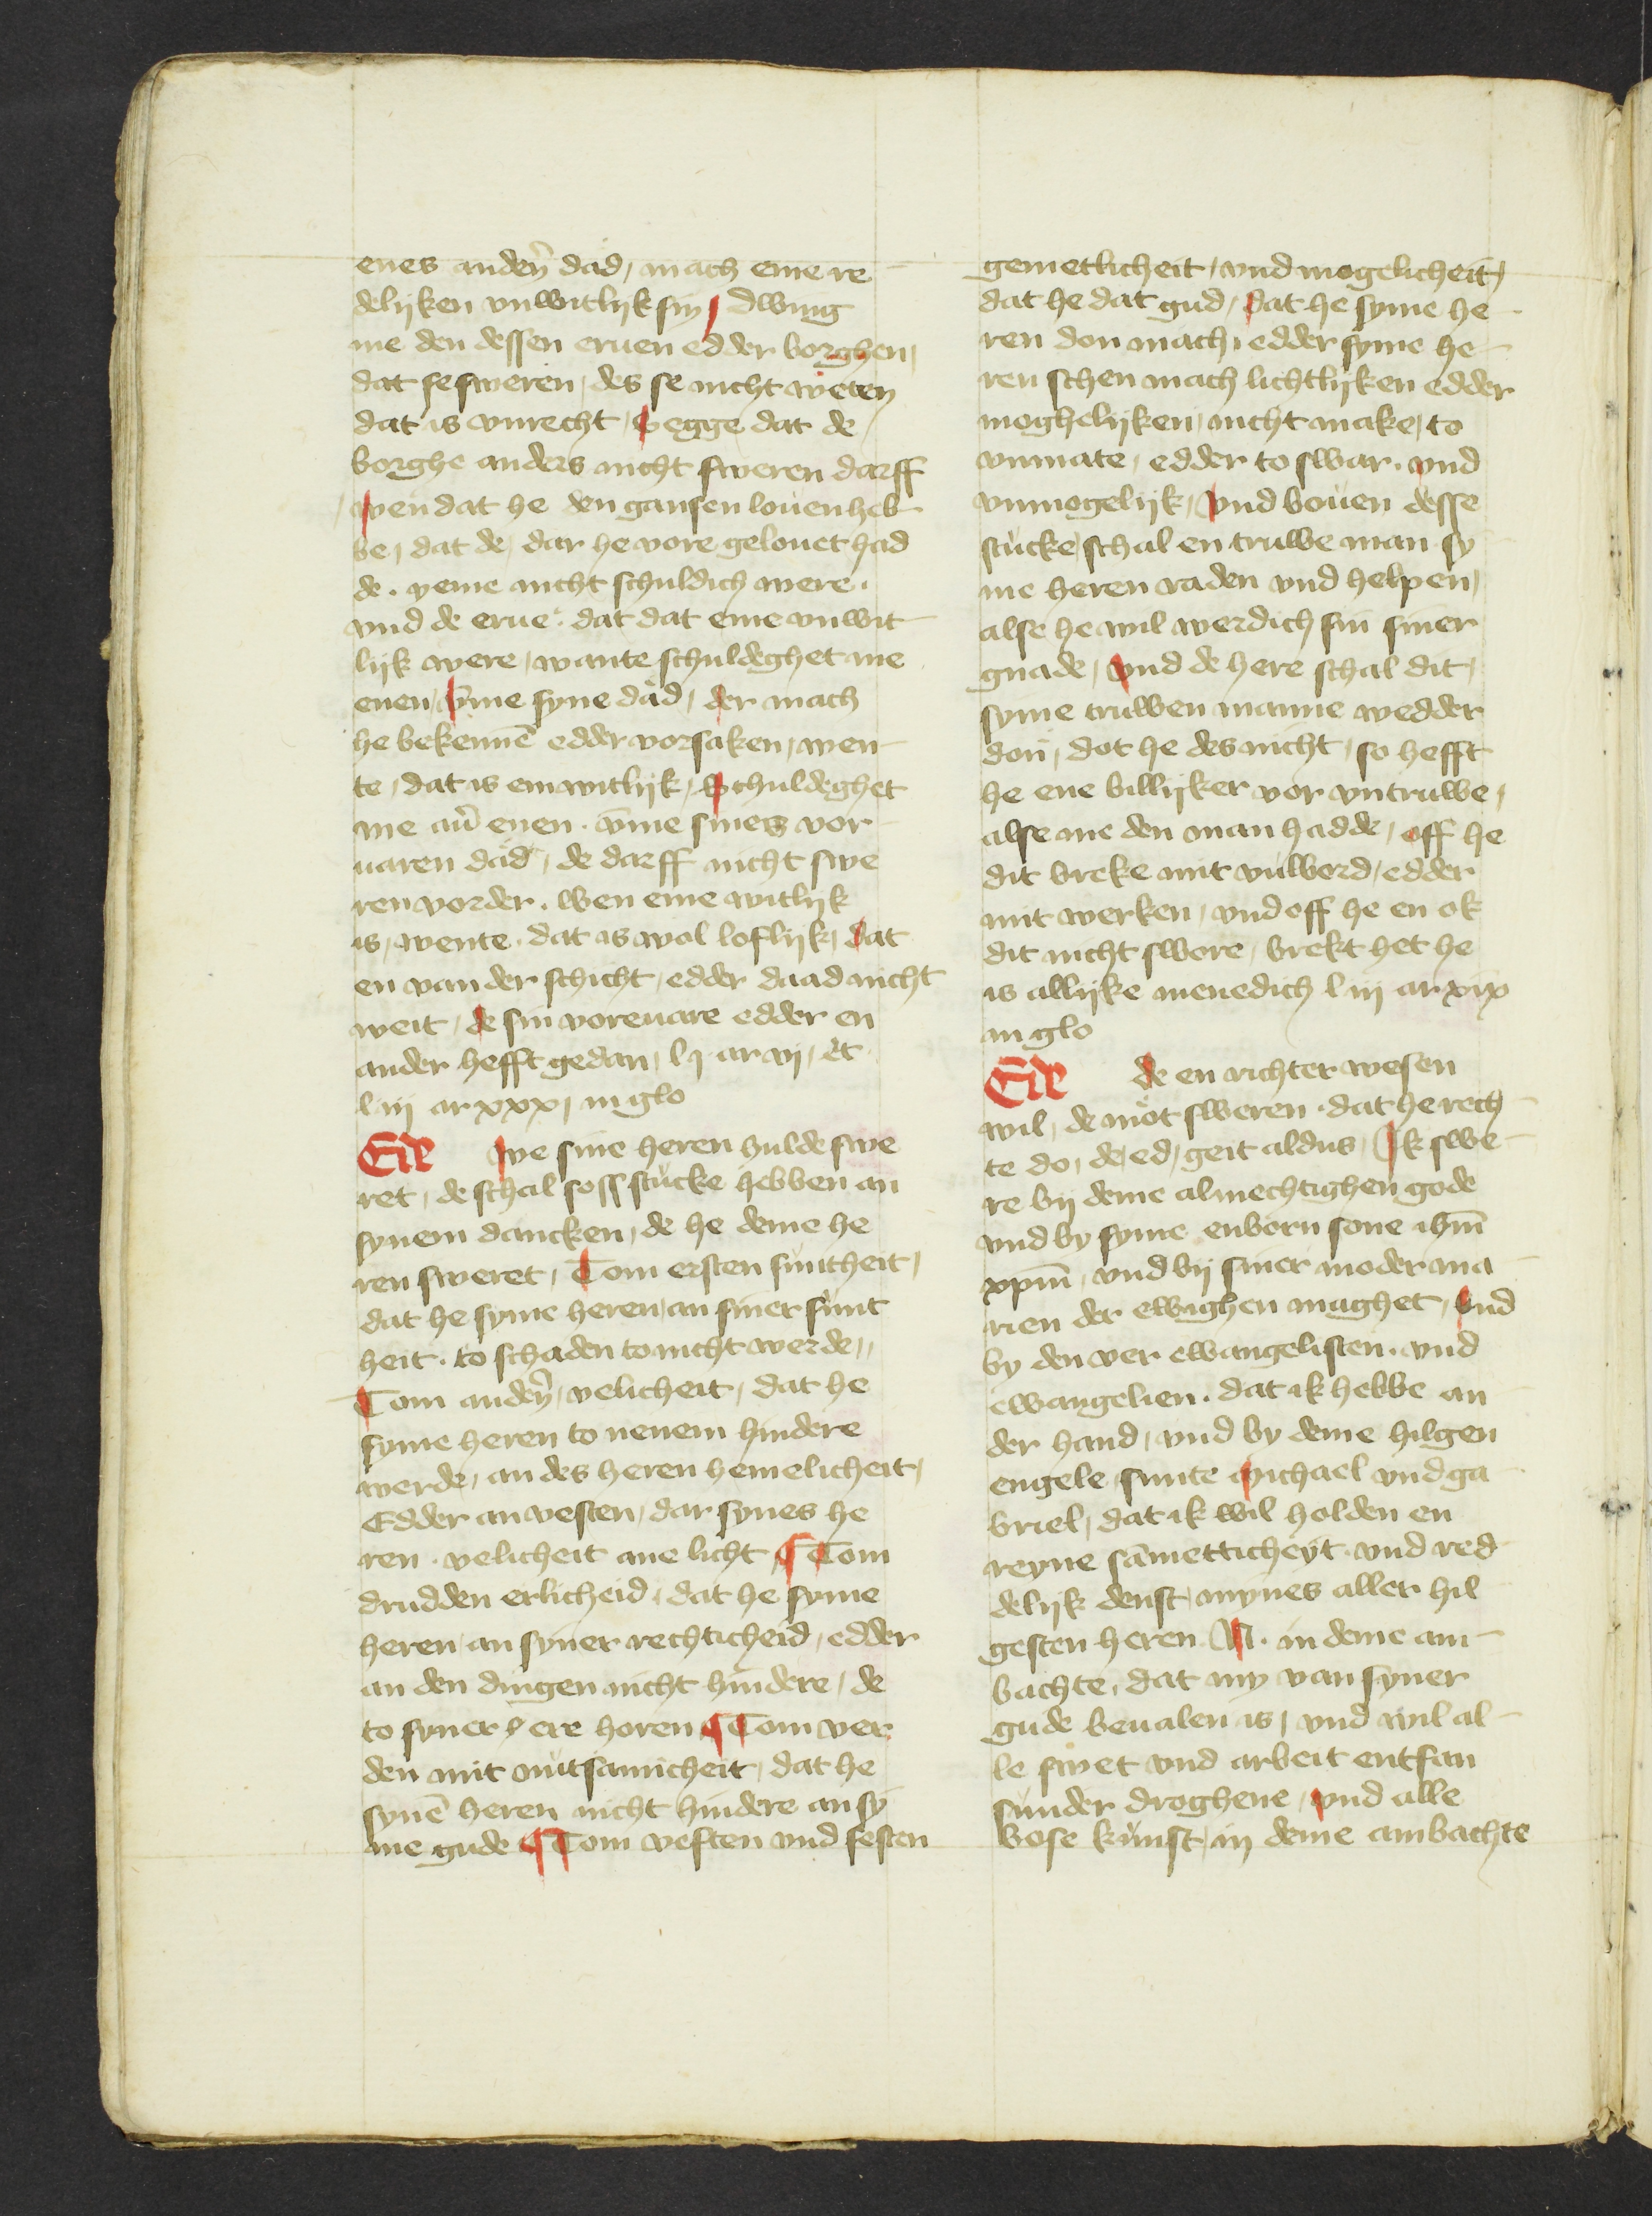 enes andeꝛn̄ dad / mach eme re
delijken vnwitlijk sin / Dwing
me den dessen eruen edder borghen /
dat se sweren / des se nicht weten
dat is vnrecht / Segge dat de
borghe anders nicht sweren darff
wen dat he den gansen louen heb
be / dat de / dar he vore gelouet had
de . yeme nicht schuldich were .
vnd de erue . dat dat eme vnwit
lijk were / wante schuldeghet me
enen / v̄me syne dåd / der mach
he bekennē edder vorsaken / wen
te / dat is em witlijk / Schuldeghet
me auͦ enen . v̄me sines vor
uaren dåd / de darff nicht swe
ren vorder . wen eme witlijk
is / wente . dat is wol loflijk / dat
en van der schicht / edder daad nicht
weit / de sin voreuare edder en
ander hefft gedan / l j ar vj / et
l iij ar xxx / in glo
Eid we sine heren hulde swe
ret / de schal soss stucke hebben an
synem dancken / de he deme he
ren sweret / Tom ersten suntheit /
dat he syme heren / an siner sunt
heit . to schaden to nicht werde //
Tom andeꝛn̄ / velicheit / dat he
syme heren to nenem hindere
werde / an des heren hemelicheit /
Edder an vesten / dar synes he
ren . velicheit ane licht ¶ Tom
drudden erlicheid / dat he syme
heren / an syner rechticheid / edder
an den dingen nicht hindere / de
to syner / ere horen ¶ Tom ver
den mit nutsamicheit / dat he
synē heren nicht hindere an sy
me gude ¶ Tom veften vnd sesten
gemetlicheit / vnd mogelicheit /
dat he dat gud / dat he syme he
ren don mach / edder syme he
ren schen mach lichtlijken edder
moghelijken / nicht make / to
vnmate / edder to swar . vnd
vnmogelijk / Vnd bouen desse
stucke / schal en truwe man sy
me heren raden vnd helpen /
alse he wil werdich sin siner
gnade / Vnd de here schal dit /
syme truwen manne wedder
don / dot he des nicht / so hefft
he ene billijker vor vntruwe /
alse me den man hadde / off he
dit breke mit vulbord / edder
mit werken / vnd off he en ok
dit nicht swore / brekt het he
is allijke menedich l iij ar xix
in glo
Eid de en richter wesen
wil / de mot sweren . dat he rech
te do / de / ed / geit aldus / Ik swe
re bij deme almechtighen gode
vnd by syme enborn sone ihm̄
xpm̄ / vnd bij siner moder ma
rien der ewighen maghet / Vnd
by den ver ewangelisten . vnd
ewangelien . dat ik hebbe an
der hand / vnd by deme hilgen
engele sunte Michael vnd ga
briel / dat ik wil holden en
reyne sāmetticheyt . vnd red
delijk denst / mynes aller hil
gesten heren N . in deme am
bachte / dat my van syner
gude beualen is / vnd wil al
le swet vnd arbeit entfan
sunder droghene / vnd alle
bose kunst / in deme ambachte